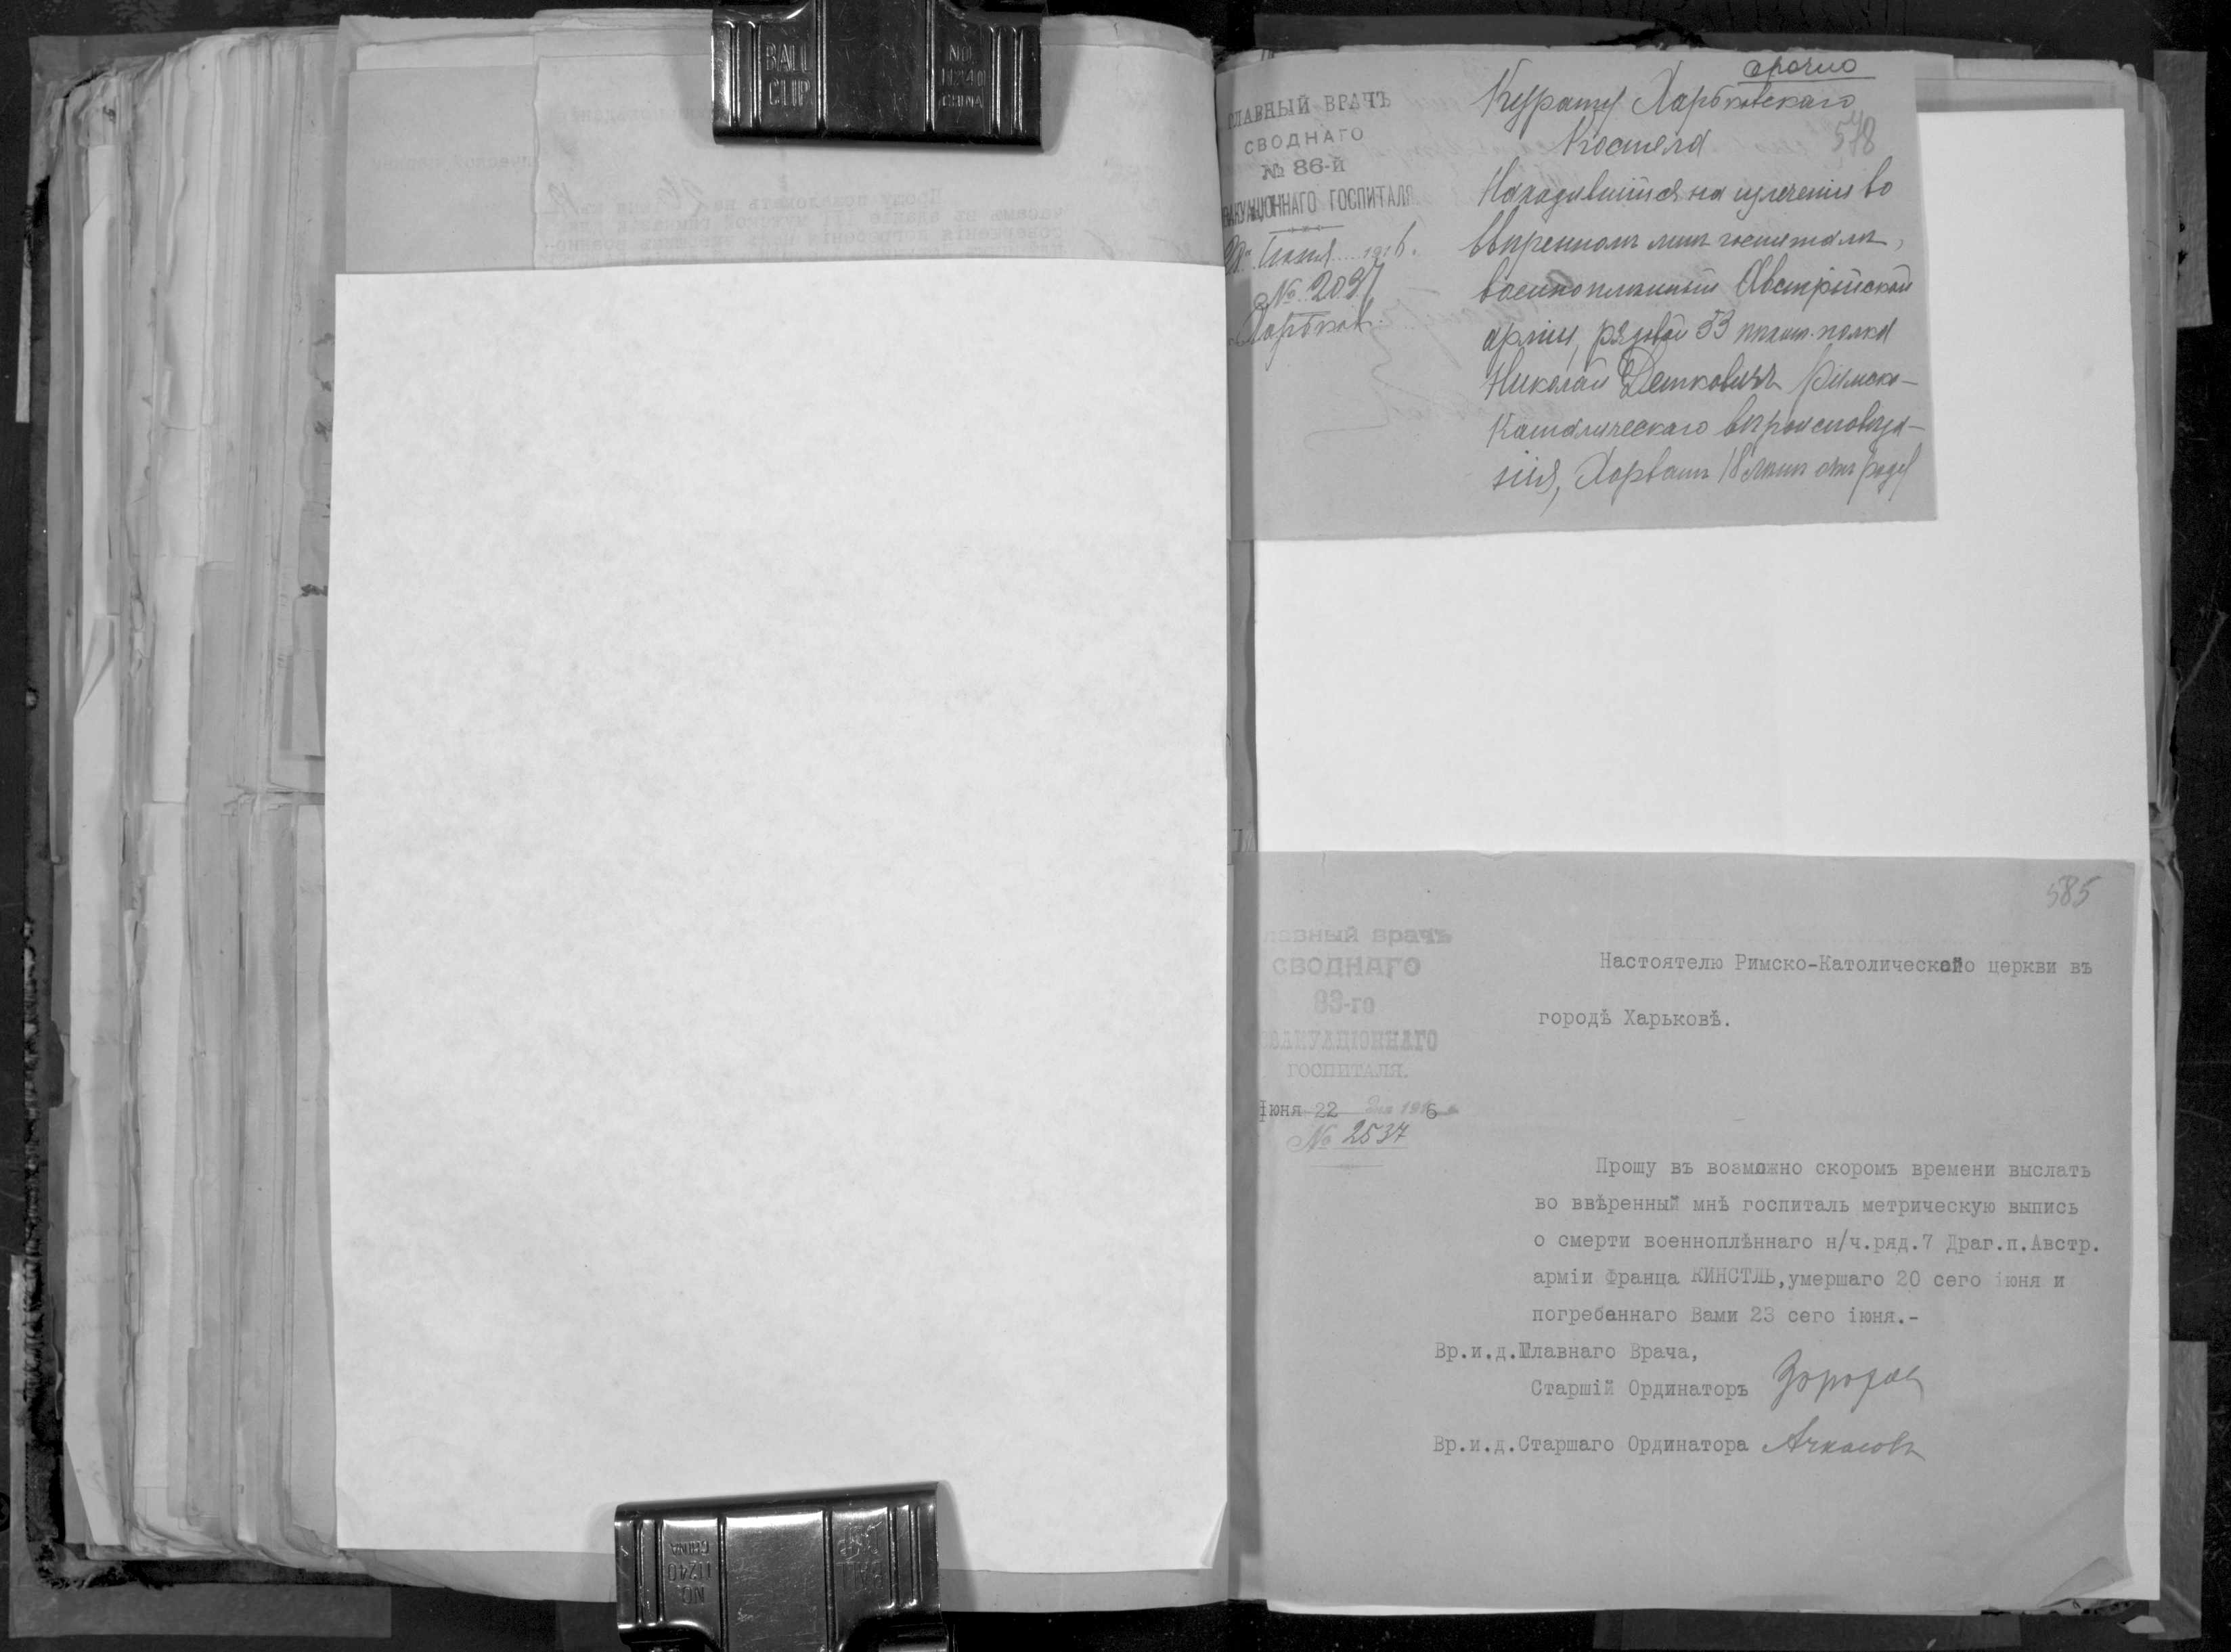 BALL
CLIP
NO.
11240
CHINA
Прошу пожаловать на
срочно
Курату Харьковскаго
Костела
578
ГЛАВНЫЙ ВРАЧЪ
СВОДНАГО
№ 86-й
ЭВАКУАЦІОННАГО ГОСПИТАЛЯ
Іюня 1916.
№ 2097
Харьков.
Находившійся на излеченіи во
ввѣренномъ мнѣ госпиталѣ,
военноплѣнный Австрійской
арміи, рядовой 53 пѣхот. полка
Николай Деткович Римско-
Католическаго вѣроисповѣда-
нія, Хорватъ 18 лѣтъ отъ роду
585
лавный врачъ
СВОДНАГО
83-го
ЭВАКУАЦІОННАГО
ГОСПИТАЛЯ.
Іюня 22 дня 1916
№ 2537
Настоятелю Римско-Католической церкви въ
городѣ Харьковѣ.
Прошу въ возможно скоромъ времени выслать
во ввѣренный мнѣ госпиталь метрическую выпись
о смерти военноплѣннаго н/ч.ряд.7 Драг.п.Австр.
арміи Франца КИНСТЛЬ,умершаго 20 сего іюня и
погребаннаго Вами 23 сего іюня.-
Вр.и.д.Главнаго Врача,
Старшій Ординаторъ
Вр.и.д.Старшаго Ординатора Ачкасовъ
BALL
CLIP
NO.
11240
CHINA